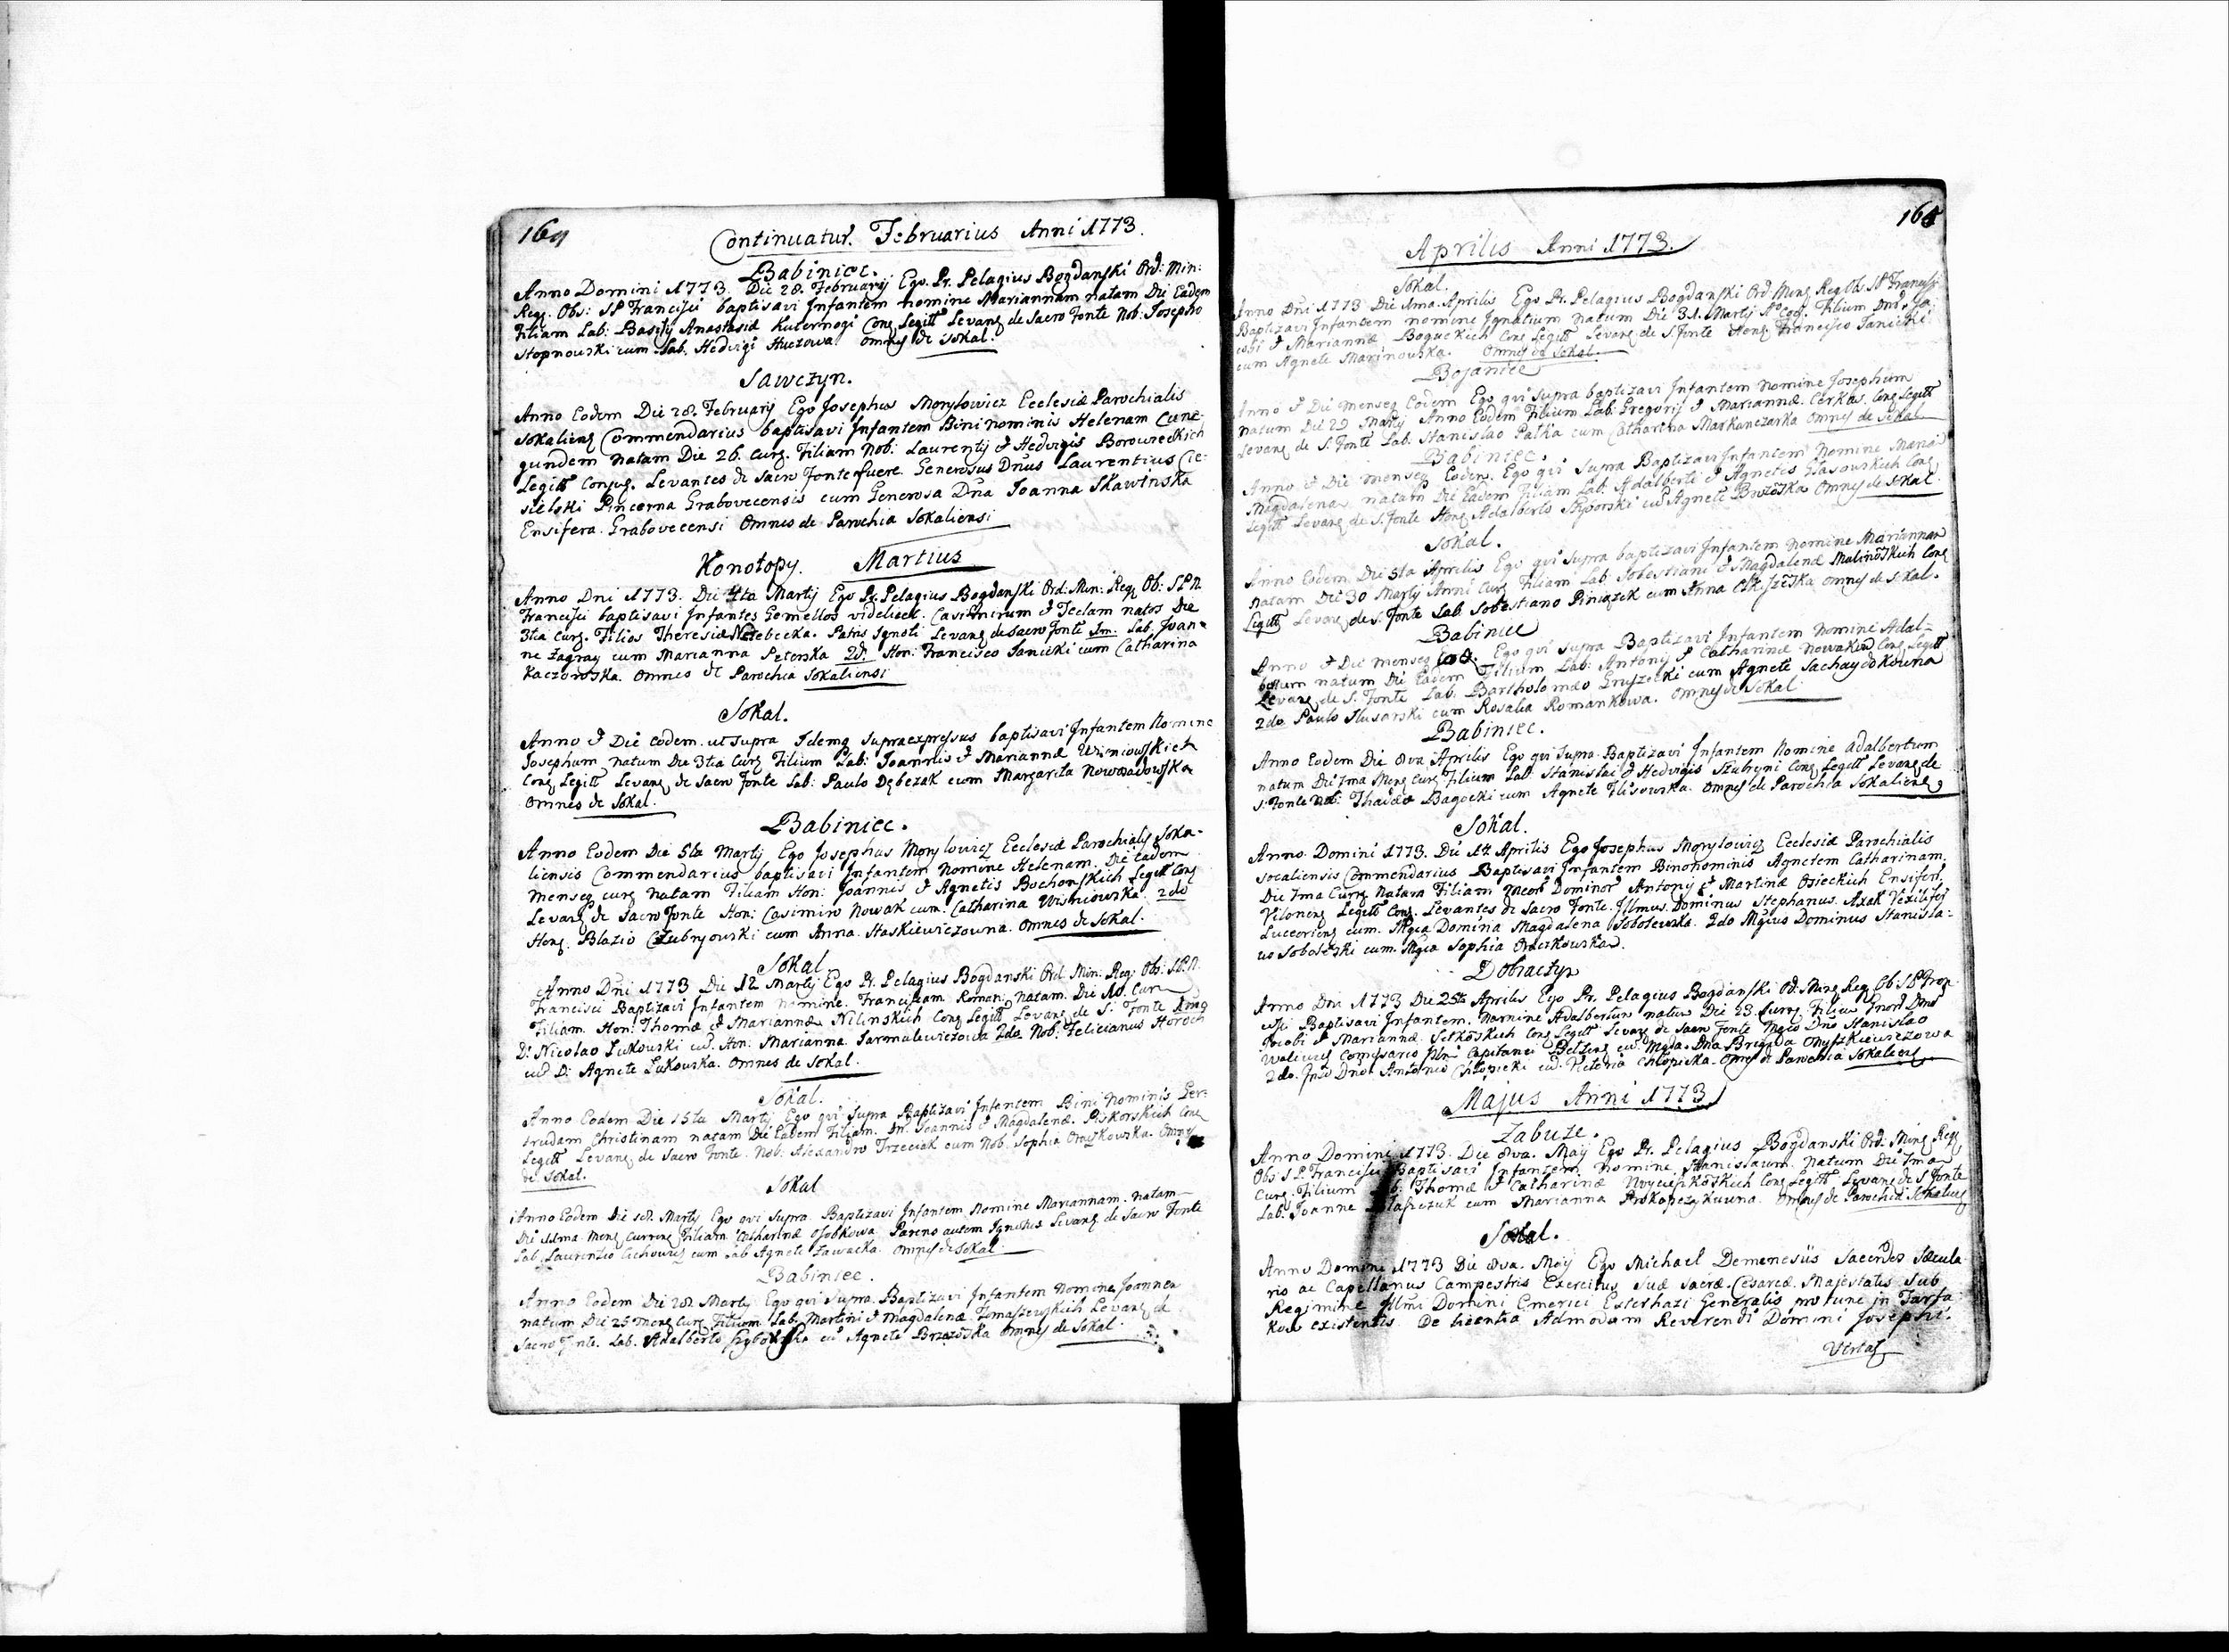 164
Continuatur. Februarius Anni 1773.
Babiniec.
Anno Domini 1773. Die 28. February Ego. Pr. Pelagius Bogdanski Ord: Min:
Reg. Obs: SP Francisci baptisavi Infantem nomine Mariannam natam Die Eadem
Filiam Lab: Basilij Anastasiæ Kuternogi Conj Legitt Levang de Sacro Fonte Nob: Josepho
Stopnowski cum Lab. Hedvigi Huczowa omnes de Sokal.
Sawczyn.
Anno Eodem Die 28. February Ego Josephus Morylowicz Ecclesiæ Parochialis
Sokaliens Commendarius baptisavi Infantem Bini nominis Helenam Cune-
gundem Natam Die 26. Curg. Filiam Nob: Laurentij & Hedvigis Borowieckich
Legitt Conjug. Levantes de Sacro Fonte fuere. Generosus Dnus Laurentius Cie-
sielski Pincerna Grabovecensis cum Generosa Dna Joanna Skawinska
Ensifera Grabovecensi Omnes de Parochia Sokaliensi
Konotopy. Martius
Anno Dni 1773. Die 4ta Martij Ego Pr. Pelagius Bogdanski Ord: Min: Reg Ob: S.P.N.
Francisci baptisavi Infantes Gemellos videlicet. Casimirum & Teclam natos Die
3tia Curg. Filios Theresiæ Patris Ignoti Levang de Sacro Fonte 1m. Lab. Joan-
ne Zagray cum Marianna Peterska 2d. Hon: Francisco Janicki cum Catharina
Kaczorowska. Omnes de Parochia Sokaliensi
Sokal.
Anno & Die eodem ut supra Idemq supraexpressus baptisavi Infantem Nomine
Josephum natum Die 3tia Curg Filium Lab: Joannis & Mariannæ Wisniowskich
Conj Legitt Levang de Sacro Fonte Lab: Paulo Dębczak cum Margarita Nowosadowska
Omnes de Sokal.
Babiniec.
Anno Eodem Die 5ta Martij Ego Josephus Morylowicz Ecclesiæ Parochialis Soka-
liensis Commendarius baptisavi Infantem Nomine Helenam. Die Eadem
Menseq curg natam Filiam Hon: Joannis & Agnetis Bochonskich Legitt Conj
Levang de Sacro Fonte Hon: Casimiro Nowak cum Catharina Wisniowska 2do
Hong. Blazio Czubryowski cum Anna Staskiewiczowna. Omnes de Sokal.
Sokal
Anno Dni 1773 Die 12 Martij Ego Pr. Pelagius Bogdanski Ord: Min: Reg: Obs: S.P.N.
Francisci Baptizavi Infantem nomine. Franciscam Roman: Natam. Die 10. Curr
Filiam. Hon: Thomæ & Mariannæ Nilinskich Conj Legitt Levang de S: Fonte 1mo
D: Nicolao Lukowski cum Hon: Marianna Jarmulewiczowa 2do Nob: Felicianus Horoch
cum D: Agnete Lukowska. Omnes de Sokal.
Sokal.
Anno Eodem Die 15ta Martij Ego qui supra Baptizavi Infantem Bini Nominis Ger-
trudam Christinam natam Die Eadem Filiam. Joannis & Magdalenæ Piskorskich Conj
Legitt Levang de Sacro Fonte. Nob: Alexandro Trzeciek cum Nob. Sophia Omes
de Sokal.
Sokal
Anno Eodem Die 18. Martij Ego qui Supra. Baptizavi Infantem Nomine Mariannam natam
Die 11ma Meng Curreng Filiam Catharinæ Osobkowa Pareno autem Ignotus Levang de Sacro Fonte
Lab. Laurentio Cichowicz cum Lab Agnete Zawacka. Omnes de Sokal.
Babiniec.
Anno Eodem Die 28. Martij Ego qui Supra. Baptizavi Infantem Nomine Joannem
natum Die 25 Meng Curg Filium Lab. Martini & Magdalenæ Tomaszewskich Levang de
Sacro Fonte. Lab. Adalberto cum Agnete Brzozowska Omnes de Sokal.
165
Aprilis Anni 1773.
Sokal.
Anno Dni 1773 Die 1ma Aprilis Ego Pr. Pelagius Bogdanski Ord Ming Reg Obs. SP Francisci
Baptizavi Infantem nomine Ignatium natum Die 31. Martij Filium Ja-
cobi & Mariannæ Boguckich Conj Legitt Levang de S. Fonte Hong Francisco Janicki
cum Agnete Marinowska. Omnes de Sokal.
Bojanice
Anno & Die Menseq Eodem Ego qui supra baptizavi Infantem nomine Josephum
natum Die 29 Martij Anno Eodem Filium Lab. Gregorij & Mariannæ Cerkas Conj Legitt
Levang de S. Fonte Lab. Stanislao Patka cum Catharina Markanczanka Omnes de Sokal
Babiniec.
Anno & Die Menseq Eodem. Ego qui Supra Baptizavi Infantem nomine Maria
Magdalena natam Die Eadem Filiam Lab. Adalberti & Agnetis Conj
Legitt Levang de S. Fonte Hong Adalberto cum Agnete Omnes de Sokal.
Sokal.
Anno Eodem Die 5ta Aprilis Ego qui supra baptizavi Infantem nomine Mariannam
Natam Die 30 Martij Anni Curg Filiam Lab: Sobestiani & Magdalenæ Malinowskich Conj
Legitt Levang de S. Fonte Lab Sobestiano Pieniązek cum Anna omnes de Sokal.
Babiniec
Anno & Die Menseq Ego qui supra Baptizavi Infantem Nomine Adal-
bertum natum Die Eadem Filium Lab: Antonij & Catharinæ Nowakow Conj Legitt
Levang de S. Fonte Lab. Bartholomæo Gruszecki cum Agnete
2do Paulo Slusarski cum Rosalia Romankowa. Omnes de Sokal.
Babiniec.
Anno Eodem Die 8va Aprilis Ego qui supra Baptizavi Infantem nomine Adalbertum
natum Die 7ma Meng Curg Filium Lab: Stanislai & Hedvigis Conj Legitt Levang de
S. Fonte Nob: Thadeo Bagocki cum Agnete Flisowska. Omnes de Parochia Sokaliens
Sokal.
Anno Domini 1773. Die 14 Aprilis Ego Josephus Morylowicz Ecclesiæ Parochialis
Socaliensis Commendarius Baptizavi Infantem Binonominis Agnetem Catharinam.
Die 7ma Curg Natam Filiam Dominor Antonij & Martinæ Osieckich Ensifer.
Vilonens Legitt Conj. Levantes de Sacro Fonte. Illmus Dominus Stephanus. Axak Vexillifer
Luceoriens cum Mgca Domina Magdalena Sobolewska 2do Mgcus Dominus Stanisla-
us Sobolewski cum Mgca Sophia
Dobraczyn
Anno Dni 1773 Die 25ta Aprilis Ego Pr. Pelagius Bogdanski Od: Ming Reg Ob SP Fran-
cisci Baptisavi Infantem. Nomine Adalbertum natum Die 23. Curg. Filium Gnor Dnor
Jacobi & Mariannæ Conj Legitt Levang de Sacro Fonte Mgco Dno Stanislao
Comissario Capitanei cum Mgda. Dna Brigida Onyszkiewiczowa
2do. Dno Antonio Chłopicki cum Victoria Chłopicka. Omnes de Parochia Sokaliens
Majus Anni 1773
Zabuze.
Anno Domini 1773. Die 8va. May Ego Pr. Pelagius Bogdanski Ord: Ming Reg
Obs: S P. Francisci Baptisavi Infantem Nomine Stanislaum. Natum Die 7ma
Curg. Filium Thomæ & Catharinæ Woyciechowskich Conj Legitt Levang de S Fonte
Lab. Joanne cum Marianna Prokopczykuwna. Omnes de Parochia Sokaliens
Sokal.
Anno Domini 1773 Die 8va. May Ego Michael Demenesiis Sacerdos Sæcula-
ris ac Capellanus Campestris Exercitus Suæ Sacræ Cesareæ Majestatis sub
Regimine Illmi Domini Emerici Esterhazi Generalis pro tunc in Tarta-
kow existentis De licentia Admodum Reverendi Domini Josephi.
Vertas